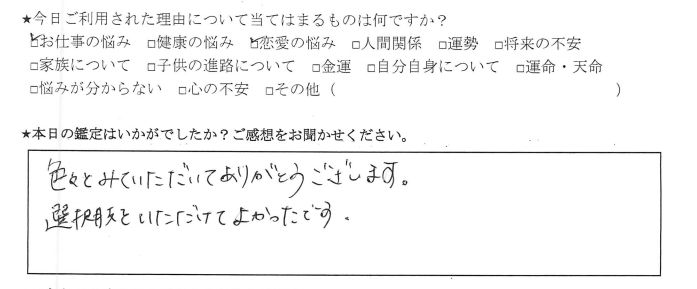 ★今日ご利用された理由について当てはまるものは何ですか？
☑お仕事の悩み □健康の悩み ☑恋愛の悩み □人間関係 □運勢 □将来の不安
□家族について □子供の進路について □金運 □自分自身について □運命・天命
□悩みが分からない □心の不安 □その他（ ）
★本日の鑑定はいかがでしたか？ご感想をお聞かせください。
色々とみていただいてありがとうございます。
選択肢といただけてよかったです.